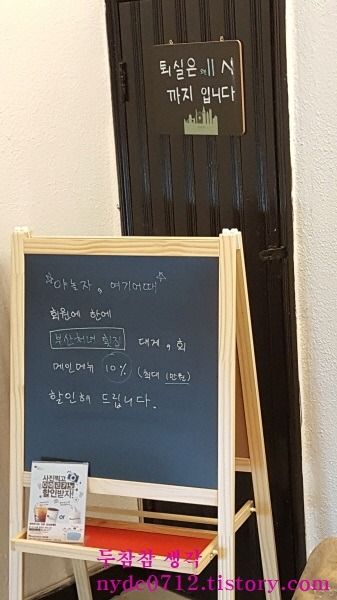 퇴실은 11시
까지 입니다
☆야놀자, 여기어때☆
회원에 한에
부산처녀 횟집 대게, 회
메인메뉴 10% (최대 1만원)
할인해 드립니다.
사진찍고
할인받자!
or
두잠잠 생각
nydc0712.tistory.com